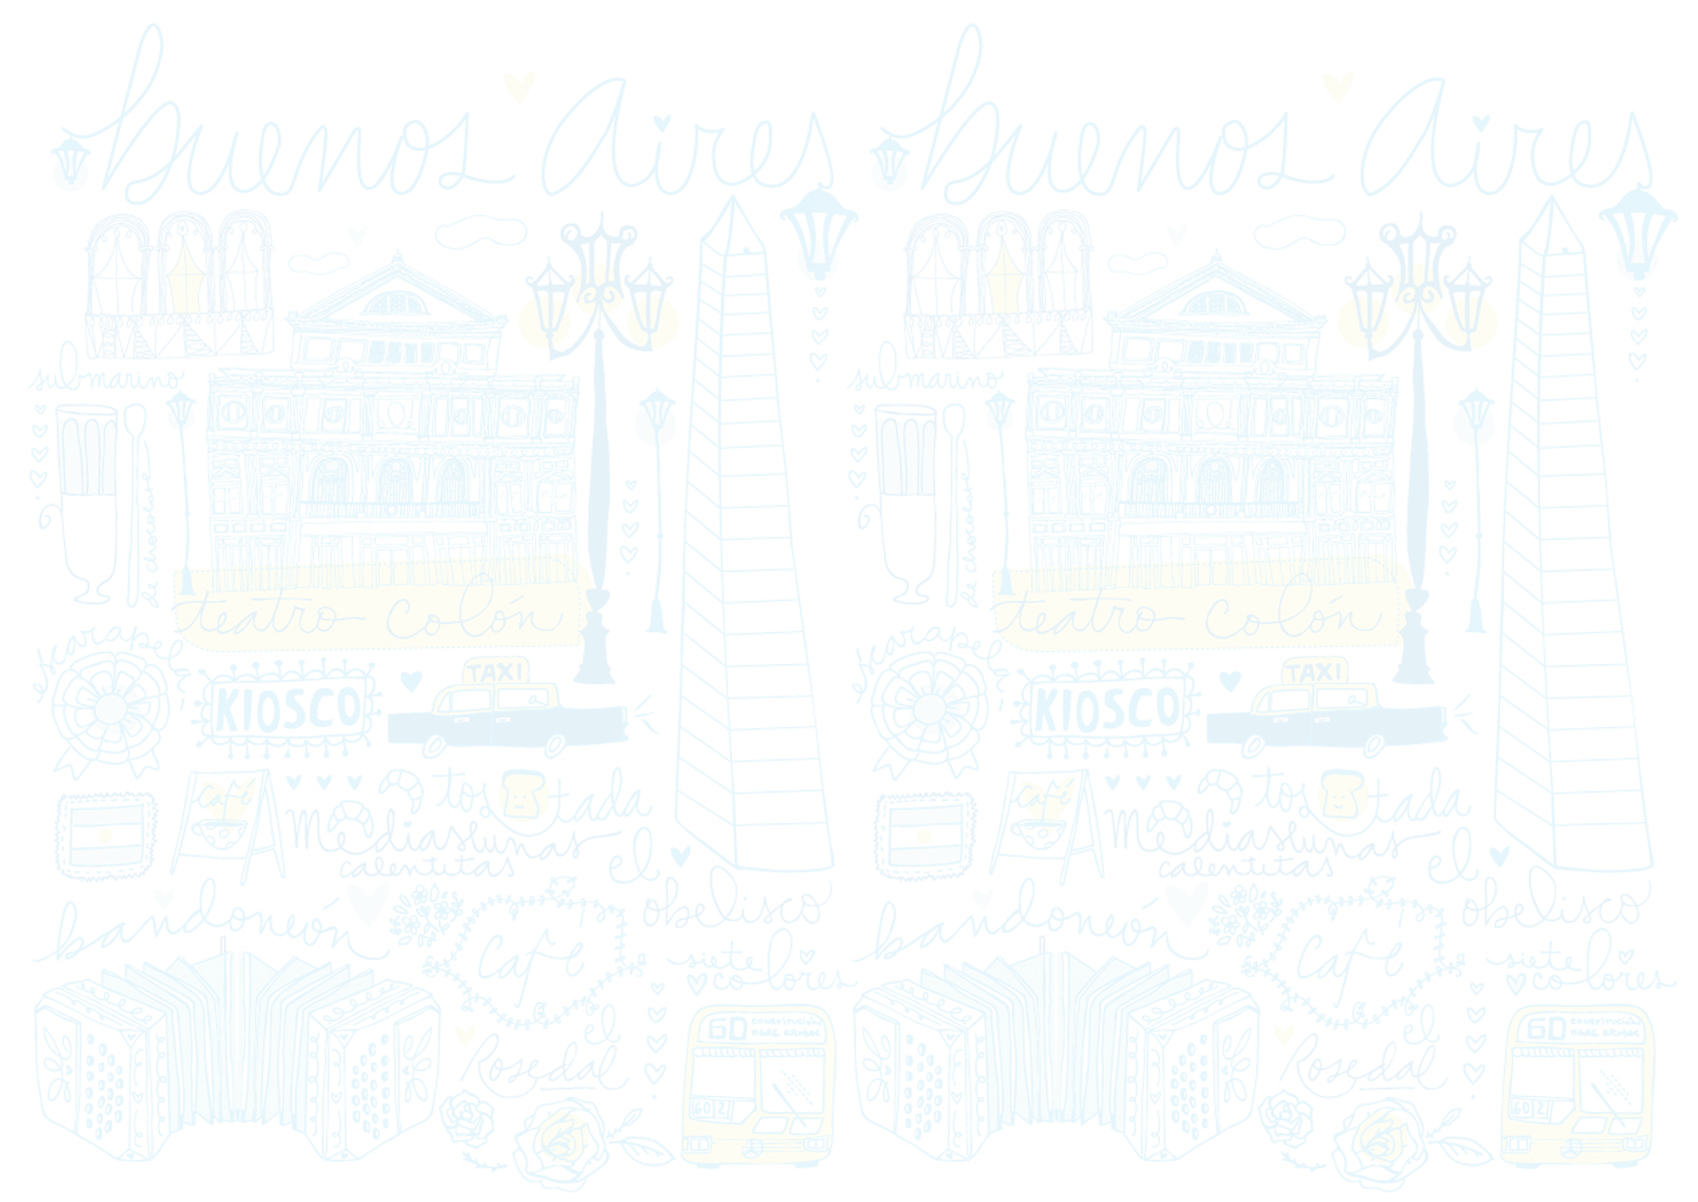 buenos Aires
submarino
de chocolate
teatro colón
escarapela
KIOSCO
TAXI
Café
tostada
Mediaslunas
calentitas
el
obelisco
bandoneón
Café
siete
colores
el
Rosedal
60 constitución
60 2
buenos Aires
submarino
de chocolate
teatro colón
escarapela
KIOSCO
TAXI
Café
tostada
Mediaslunas
calentitas
el
obelisco
bandoneón
Café
siete
colores
el
Rosedal
60 constitución
60 2